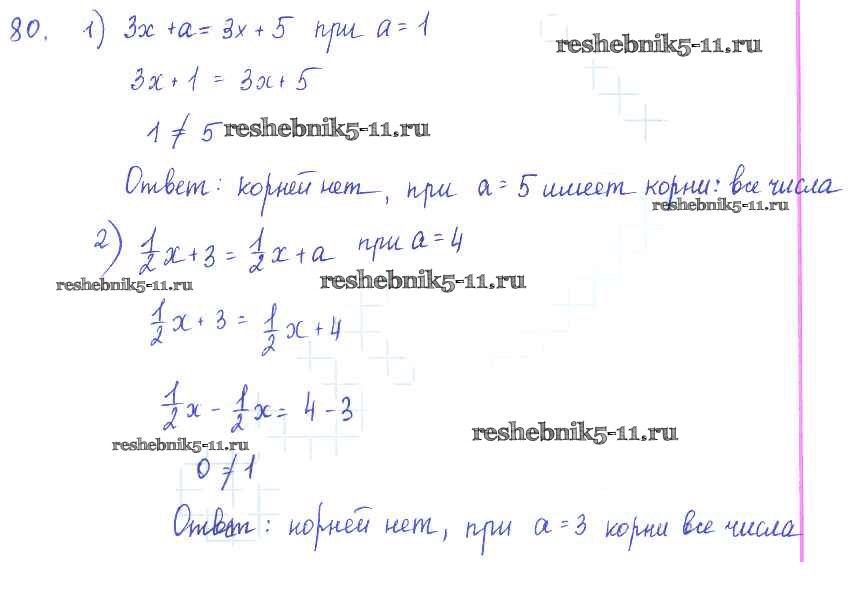 80. 1) 3x + a = 3x + 5 при a = 1
reshebnik5-11.ru
3x + 1 = 3x + 5
1 ≠ 5 reshebnik5-11.ru
Ответ: корней нет, при a = 5 имеет корни: все числа
reshebnik5-11.ru
2) 1/2 x + 3 = 1/2 x + a при a = 4
reshebnik5-11.ru reshebnik5-11.ru
1/2 x + 3 = 1/2 x + 4
1/2 x - 1/2 x = 4 - 3
reshebnik5-11.ru reshebnik5-11.ru
0 ≠ 1
Ответ: корней нет, при a = 3 корни все числа